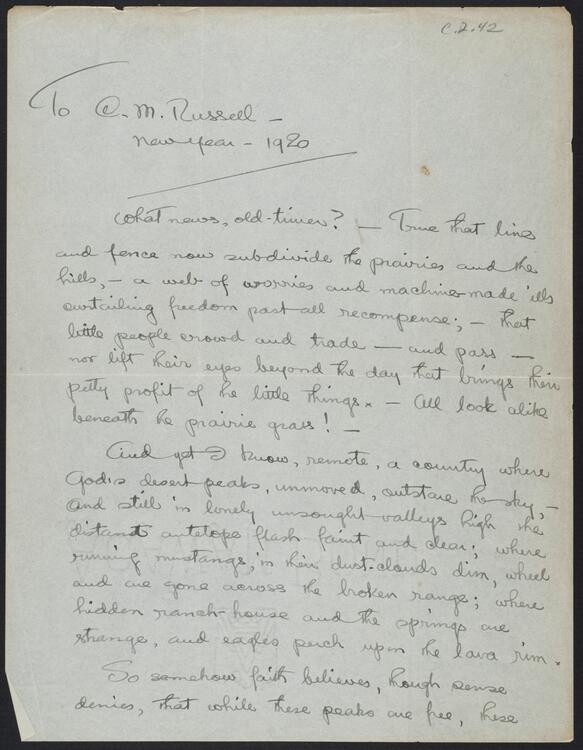 C.2.42
To C. M. Russell —
New Year — 1920
What news, old-timer? — True that lines
and fence now subdivide the prairies and the
hills, — a web of worries and machine-made ills
curtailing freedom past all recompense; — that
little people crowd and trade — and pass —
nor lift their eyes beyond the day that brings their
petty profit of the little things. — All look alike
beneath the prairie grass! —
And yet I know, remote, a country where
God's desert peaks, unmoved, outstare the sky, —
and still in lonely unsought valleys high the
distant antelope flash faint and clear; where
running mustangs, in their dust-clouds dim, wheel
and are gone across the broken range; where
hidden ranch-house and the springs are
strange, and eagles perch upon the lava rim.
So somehow faith believes, though sense
denies, that while these peaks are free, these